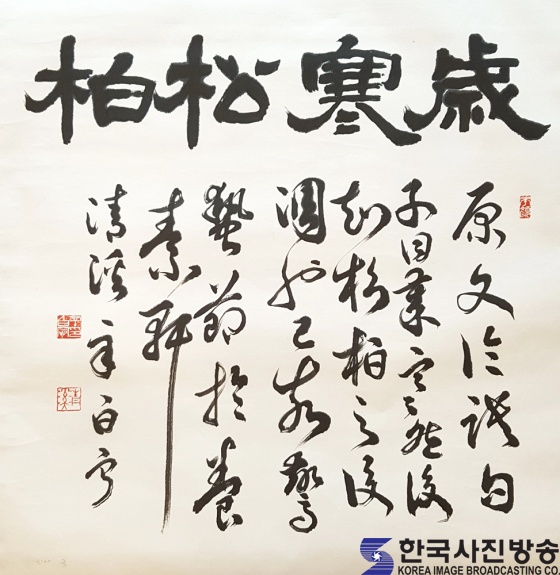 歲寒松柏
原文論語句
子曰歲寒然後
知松柏之後
凋也己亥驚
蟄節於養
素軒
清溪
한국사진방송
KOREA IMAGE BROADCASTING CO.